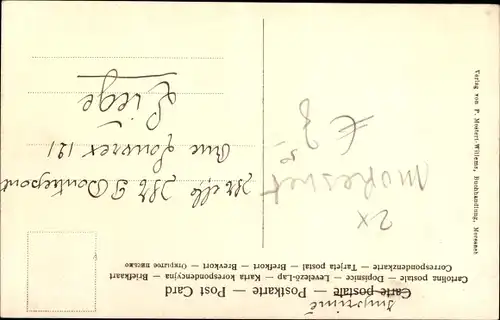 imprimé
Carte postale — Postkarte — Post Card
Cartolina postale — Dopisnice — Levelező-Lap — Karta korespondencyjna — Briefkaart
Correspondenzkarte — Tarjeta postal — Bretkort — Brevkort — Открытое письмо
2x
Moresnet
€ 8
Rue Louvrex 121
Liège
Verlag von P. Mostert-Willems, Buchhandlung, Moresnet